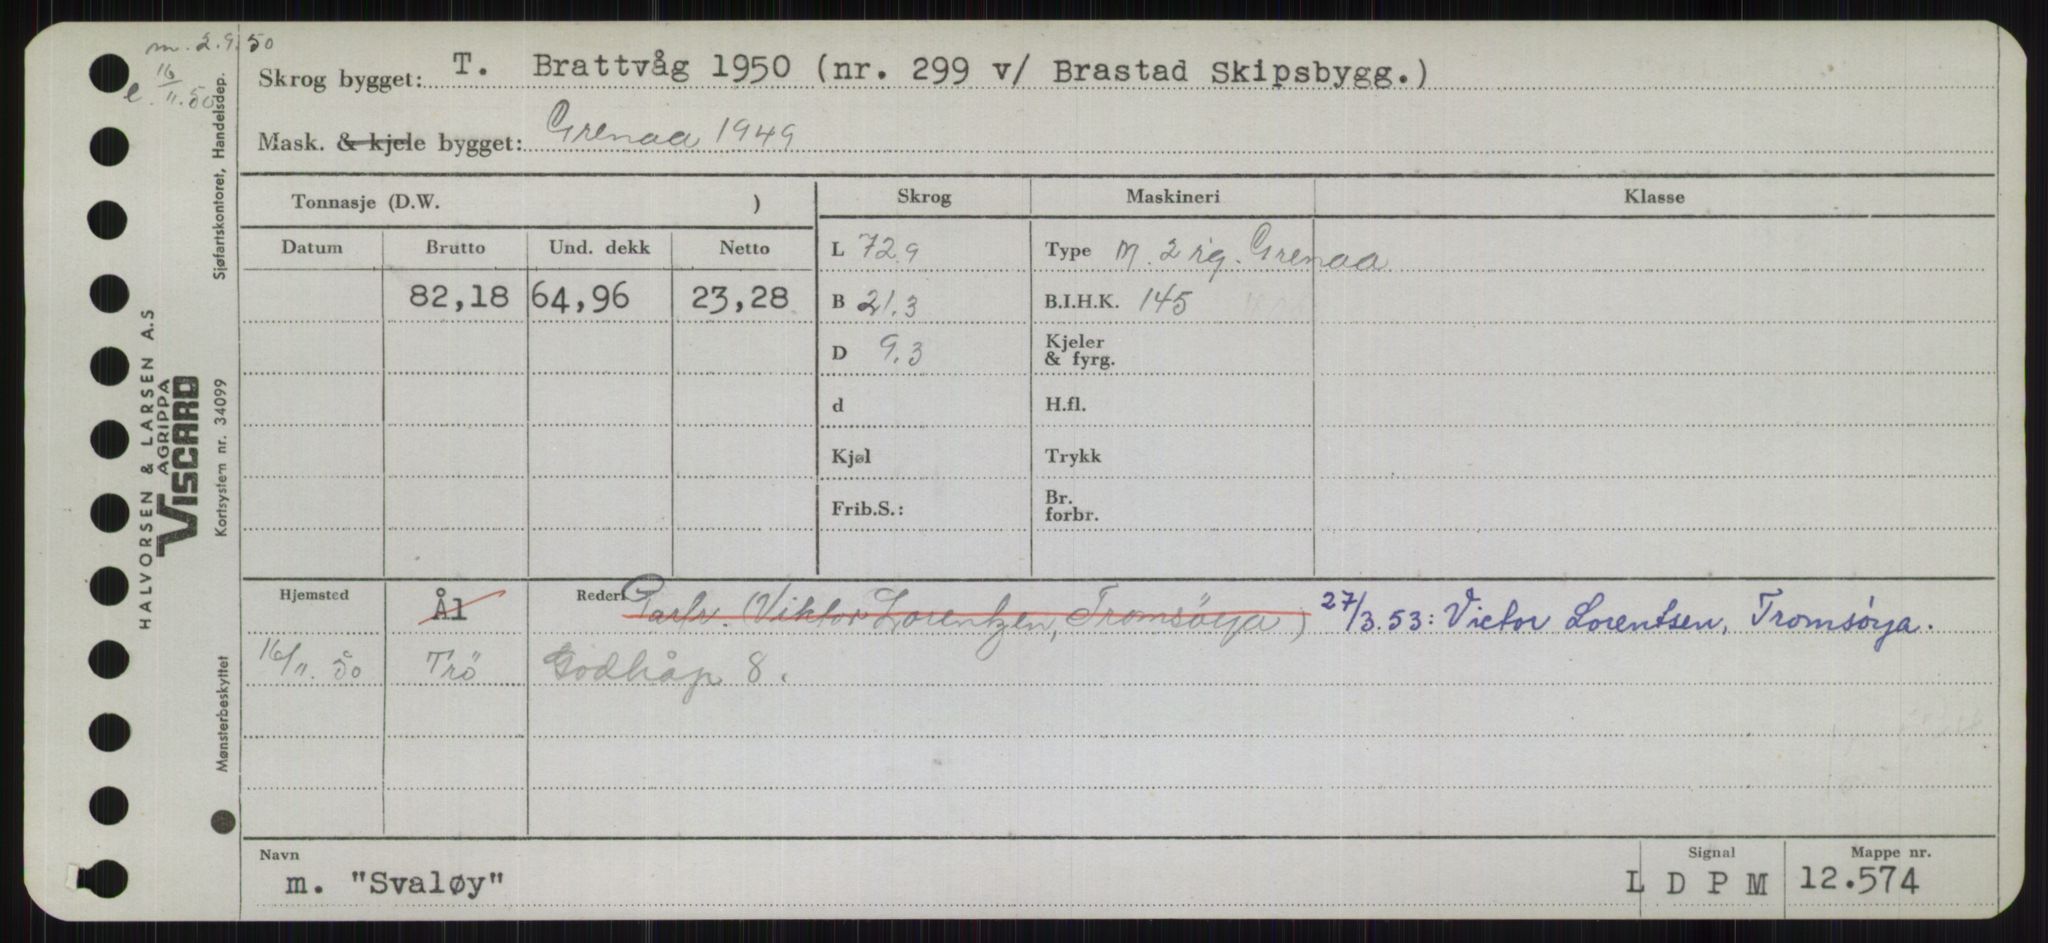 m. 2.9.50
e. 16/11.50
Skrog bygget: T. Brattvåg 1950 (nr. 299 v/ Brastad Skipsbygg.)
Mask. & kjele bygget: Grenaa 1949
Tonnasje (D.W. )
Skrog Maskineri Klasse
Datum Brutto Und. dekk Netto
L 72,9 Type M. 2 syl. Grenaa
82,18 64,96 23,28 B 21,3 B.I.H.K. 145
D 9,3 Kjeler
& fyrg.
d H.fl.
Kjøl Trykk
Frib.S.: Br.
forbr.
Hjemsted Ål Rederi Partr. (Viktor Lorentzen, Tromsöya) 27/3.53: Victor Lorentsen, Tromsöya.
16/11.50 Trö Godhåp 8.
Navn Signal Mappe nr.
m. "Svaløy" L D P M 12.574
HALVORSEN & LARSEN A.S
AGRIPPA
VISCARD
Mønsterbeskyttet Kortsystem nr. 34099 Sjøfartskontoret, Handelsdep.